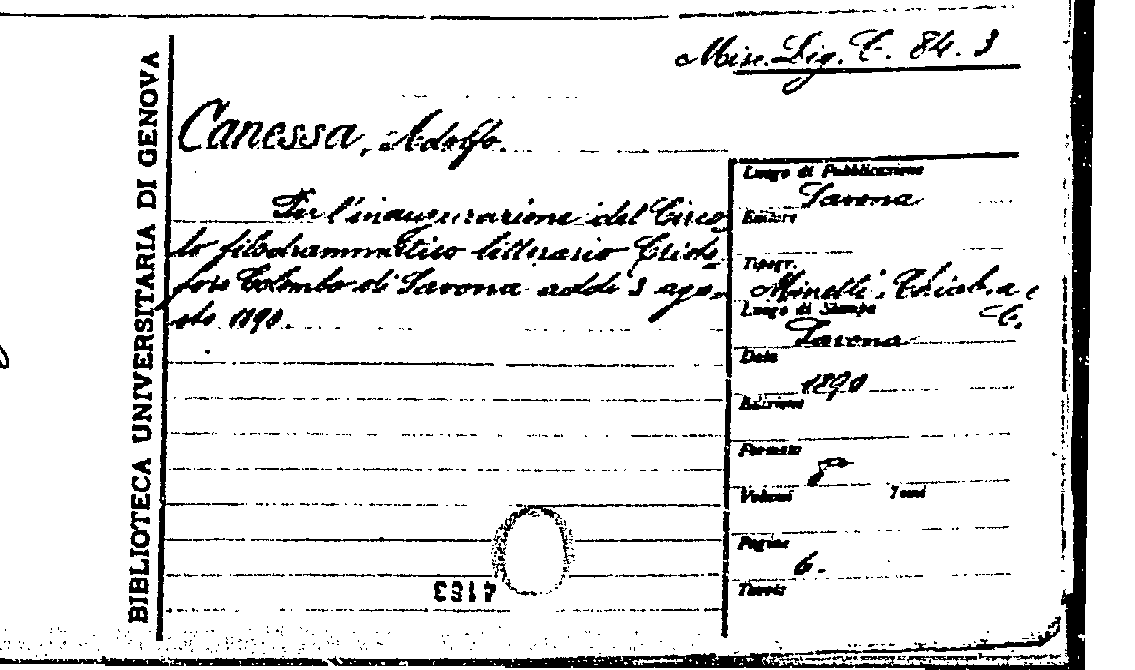 Misc. Lig. C. 84. 3
BIBLIOTECA UNIVERSITARIA DI GENOVA
Canessa, Adolfo.
Per l'inaugurazione del Circo
lo filodrammatico litterario Cristo=
foro Colombo di Savona addì 3 ago=
sto 1890.
Luogo di Pubblicazione
Savona
Editore
Tipogr.
Minelli, Chiab. a e
C.
Luogo di Stampa
Savona
Data
1890
Edizione
Formato
8°
Volumi Tomi
Pagine
6.
Tavole
4183